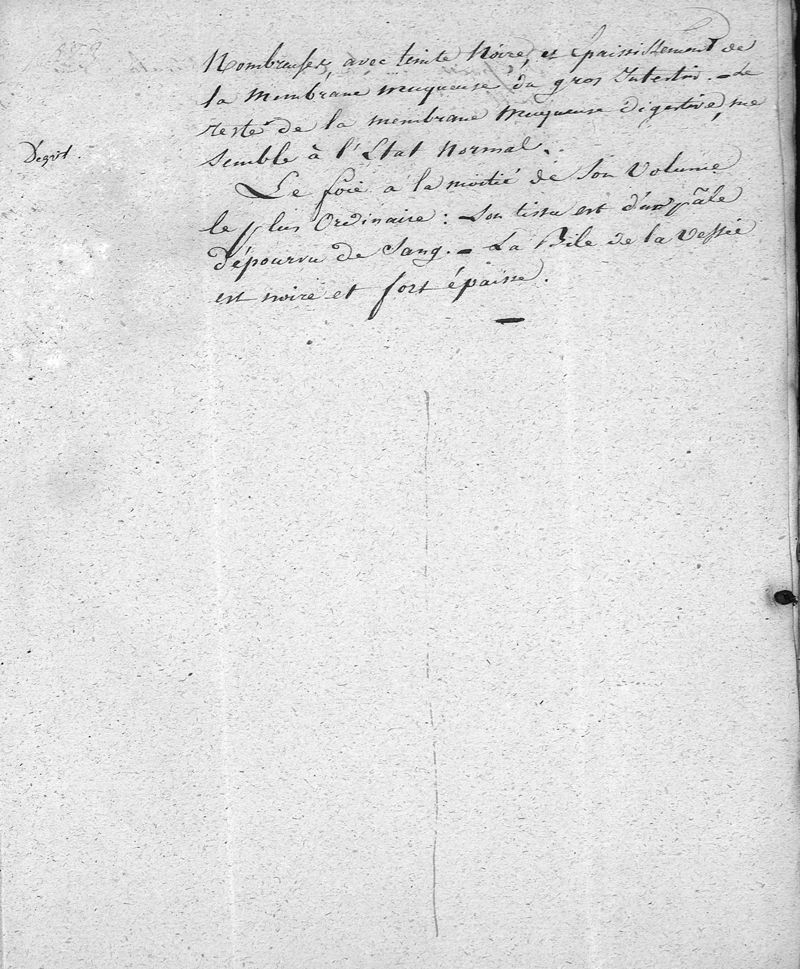 Nombreuses, avec teinte Noire, et Epaississement de
la membrane muqueuse du gros Intestin. - Le
reste de la membrane muqueuse digestive, me
Semble à l'Etat Normal.
Le foie a la moitié de Son Volume
le plus Ordinaire : Son tissu est d'un pâle
dépourvu de Sang. - La Bile de la Vessie
est noire et fort épaisse.